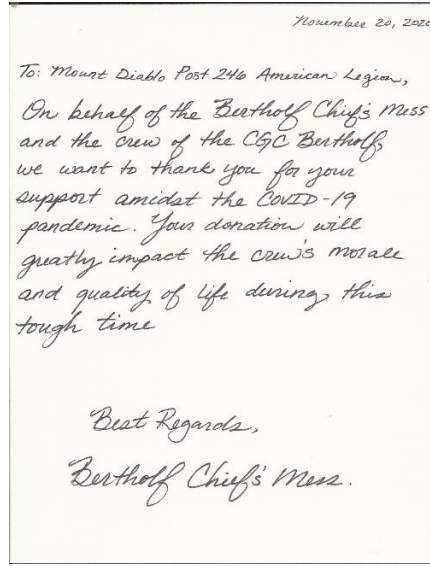 November 20, 2020
To: Mount Diablo Post 246 American Legion,
On behalf of the Bertholf Chief's Mess
and the crew of the CGC Bertholf,
we want to thank you for your
support amidst the COVID-19
pandemic. Your donation will
greatly impact the crew's morale
and quality of life during this
tough time
Best Regards,
Bertholf Chief's Mess.